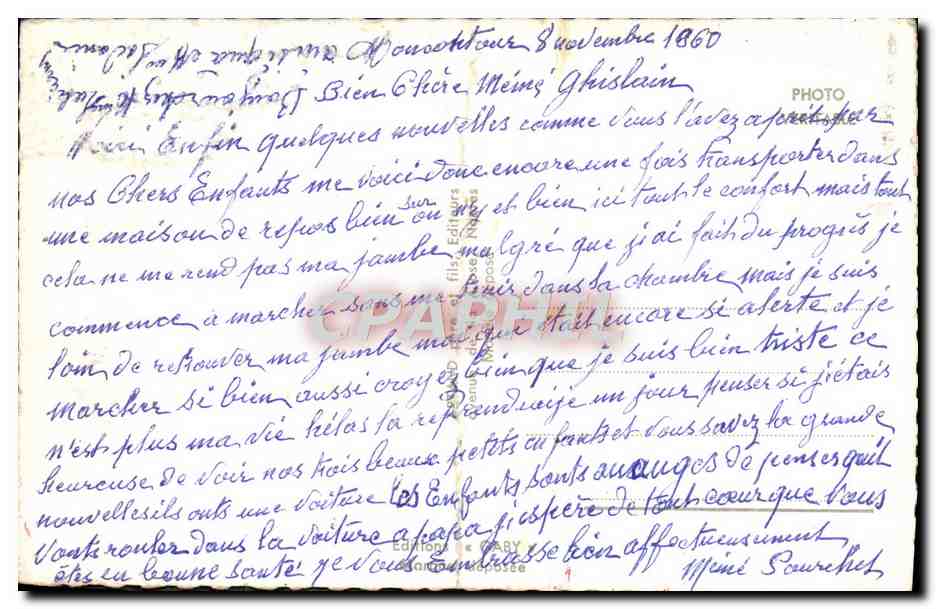 Moncontour 8 novembre 1960
Bien Chère Mémé Ghislain
Voici Enfin quelques nouvelles comme vous l'avez aprit par
nos Chers Enfants me voici donc encore une fois transporter dans
une maison de repos bien sur on y est bien ici tout le confort mais tout
cela ne me rend pas ma jambe malgré que j'ai fait du progrès je
commence a marcher sans me tenir dans la chambre mais je suis
loin de retrouver ma jambe moi qui était encore si alerte et je
marcher si bien aussi croyez bien que je suis bien triste ce
n'est plus ma vie hélas la reprendraije un jour penser si j'étais
heureuse de voir nos trois beaux petits enfants et vous savez la grande
nouvelles ils onts une voiture les Enfants sonts au anges de penser qu'il
vonts rouler dans la voiture a papa j'espère de tout cœur que vous
êtes en bonne santé je vous embrasse bien affectueusement
Mémé Pourchet
PHOTO
et fils, Editeurs
Editions « GABY »
déposée
CPAPHIL